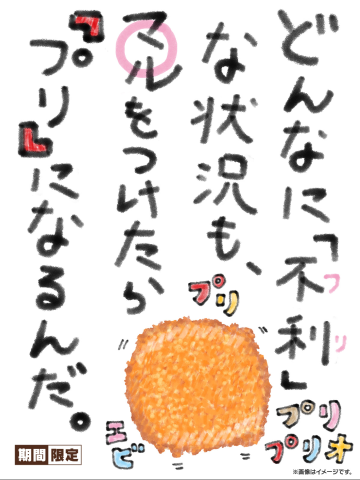 どんなに「不利」
フ
リ
な状況も、
マルをつけたら
『プリ』になるんだ。
プリ
エビ
プリ
プリオ
期間限定
※画像はイメージです。